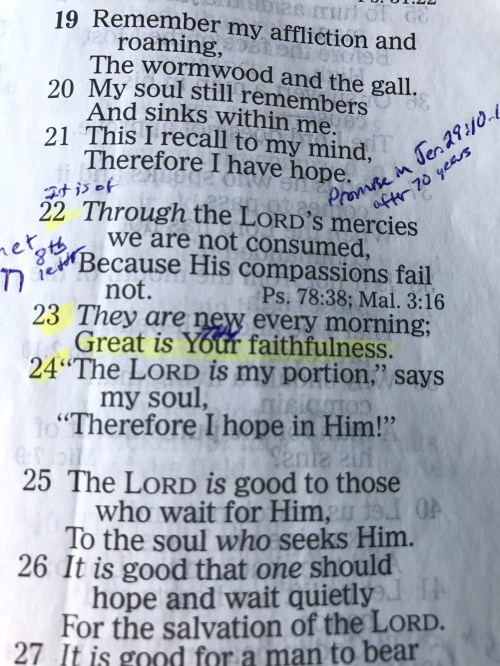 19 Remember my affliction and
roaming,
The wormwood and the gall.
20 My soul still remembers
And sinks within me.
21 This I recall to my mind,
Therefore I have hope.
Promise in Jer. 29:10
after 70 years
It is of
22 Through the LORD'S mercies
we are not consumed,
8th
letter
ח
Because His compassions fail
not. Ps. 78:38; Mal. 3:16
23 They are new every morning;
Great is Your faithfulness.
24 "The LORD is my portion," says
my soul,
"Therefore I hope in Him!"
25 The LORD is good to those
who wait for Him,
To the soul who seeks Him.
26 It is good that one should
hope and wait quietly
For the salvation of the LORD.
27 It is good for a man to bear